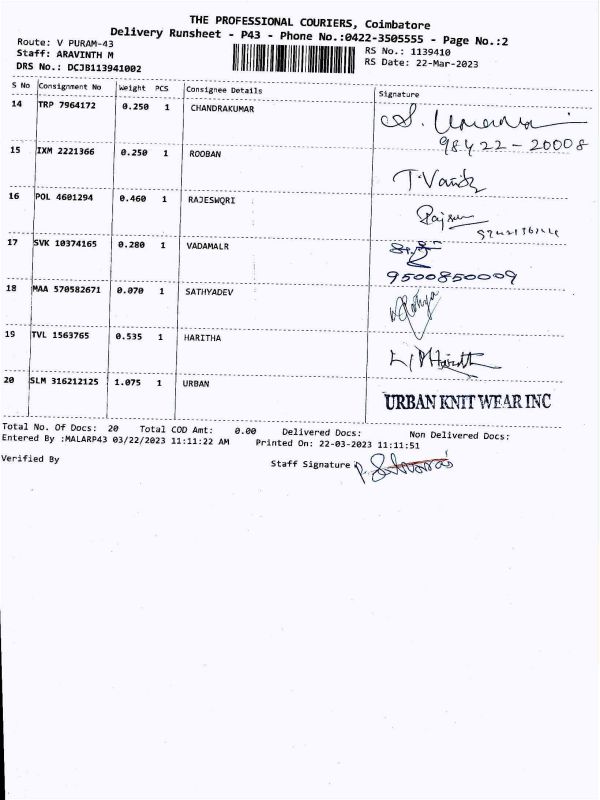 THE PROFESSIONAL COURIERS, Coimbatore
Delivery Runsheet - P43 - Phone No.:0422-3505555 - Page No.:2
Route: V PURAM-43
Staff: ARAVINTH M
DRS No.: DCJB113941002
RS No.: 1139410
RS Date: 22-Mar-2023
S No Consignment No Weight PCS Consignee Details Signature
14 TRP 7964172 0.250 1 CHANDRAKUMAR
98422-20008
15 IXM 2221366 0.250 1 ROOBAN
16 POL 4601294 0.460 1 RAJESWQRI
17 SVK 10374165 0.280 1 VADAMALR
9500850009
18 MAA 570582671 0.070 1 SATHYADEV
19 TVL 1563765 0.535 1 HARITHA
20 SLM 316212125 1.075 1 URBAN URBAN KNIT WEAR INC
Total No. Of Docs: 20 Total COD Amt: 0.00 Delivered Docs: Non Delivered Docs:
Entered By :MALARP43 03/22/2023 11:11:22 AM Printed On: 22-03-2023 11:11:51
Verified By Staff Signature